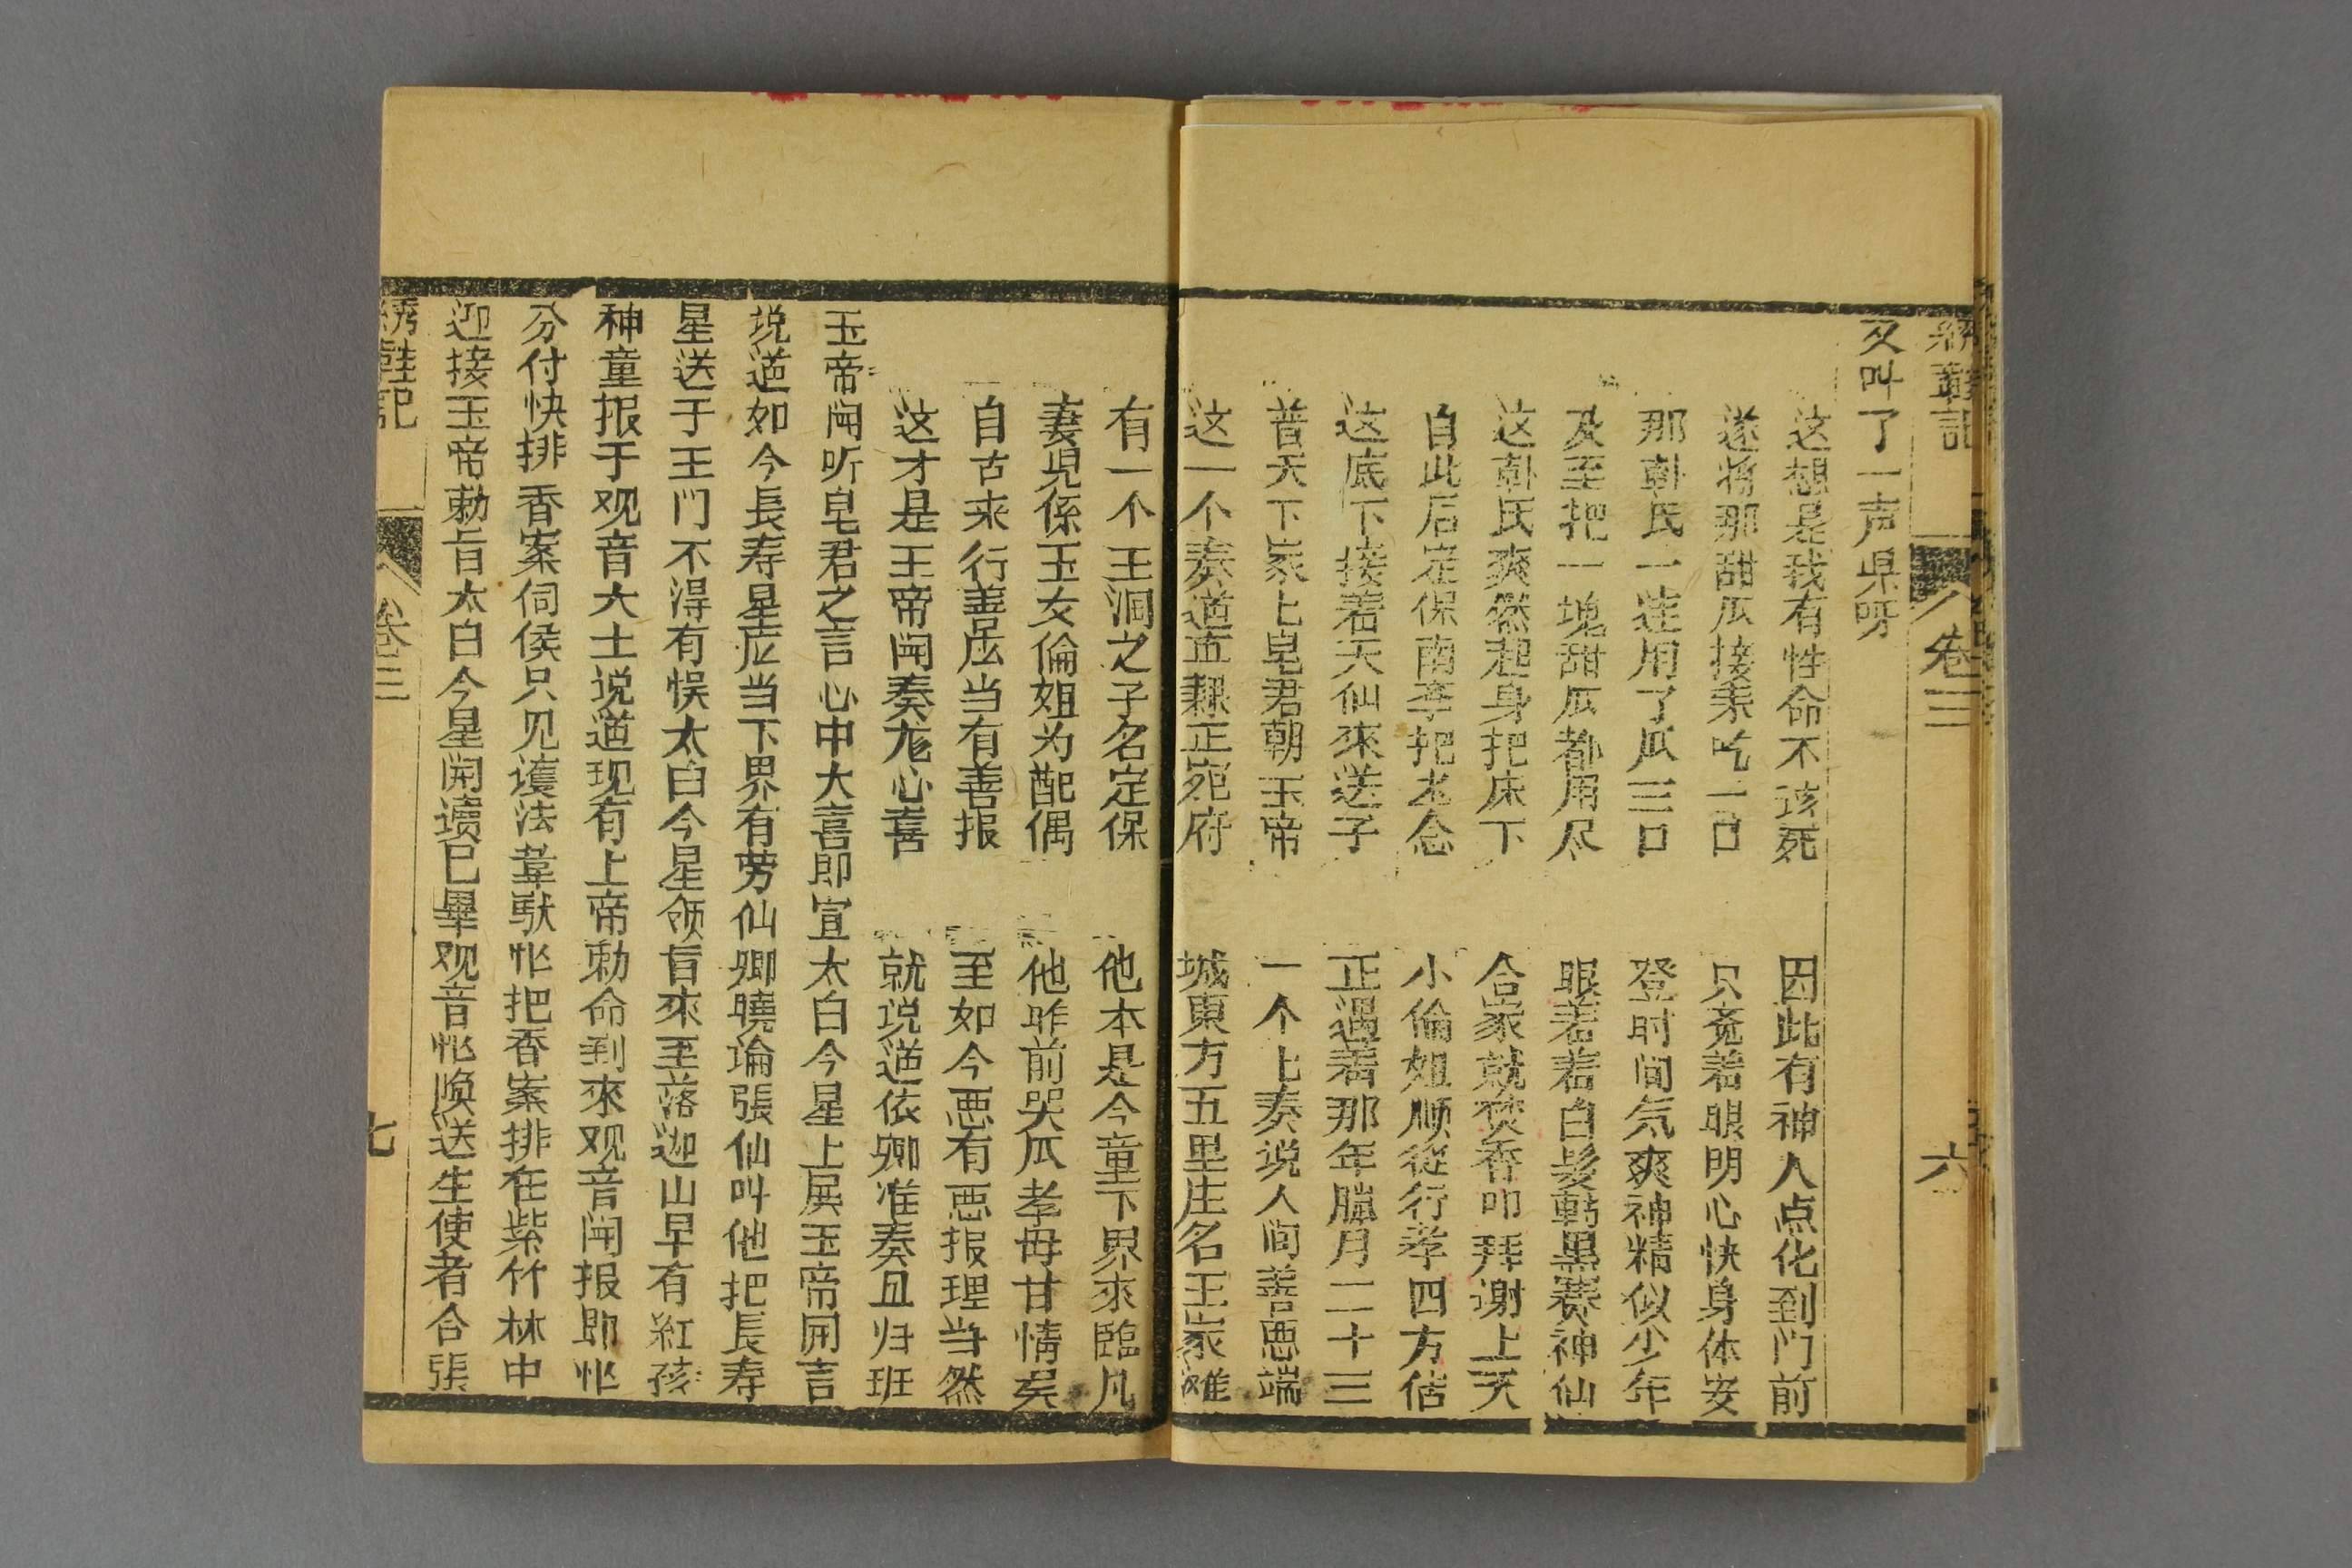 綉鞋記 卷三 六
又叫了一声県呀
这想是我有性命不该死 因此有神人点化到门前
遂将那甜瓜接来吃一口 只竟着眼明心快身体安
那韩氏一連用了瓜三口 登时间気爽神精似少年
及至把一塊甜瓜都用尽 眼着着白髮轉黑赛神仙
这韩氏爽然起身把床下 合家就焚香叩拜谢上天
自此后定保南李把老念 小倫姐順從行孝四方傳
这底下接着天仙來送子 正遇着那年臘月二十三
普天下家上皂君朝玉帝 一个上奏说人间善悪端
这一个奏道直隸正宛府 城東方五里庄名王家灘
有一个王洞之子名定保 他本是今童下界來臨凡
妻児係玉女倫姐为配偶 他昨前哭瓜孝母甘情吳
自古来行善店当有善报 至如今悪有悪报理当然
这才是王帝闻奏龙心喜 就说道依卿准奏且归班
玉帝闻听皂君之言心中大喜即宣太白今星上展玉帝開言
说道如今長寿星应当下界有劳仙卿曉論張仙叫他把長寿
星送于王门不得有悮太白今星领旨來至落迦山早有紅孩
神童报于观音大士说道现有上帝勅命到來观音闻报即忙
分付快排香案伺侯只见護法韋馱忙把香案排在紫竹林中
迎接玉帝勅旨太白今星開讀已畢观音忙喚送生使者合張
綉鞋記 卷三 七